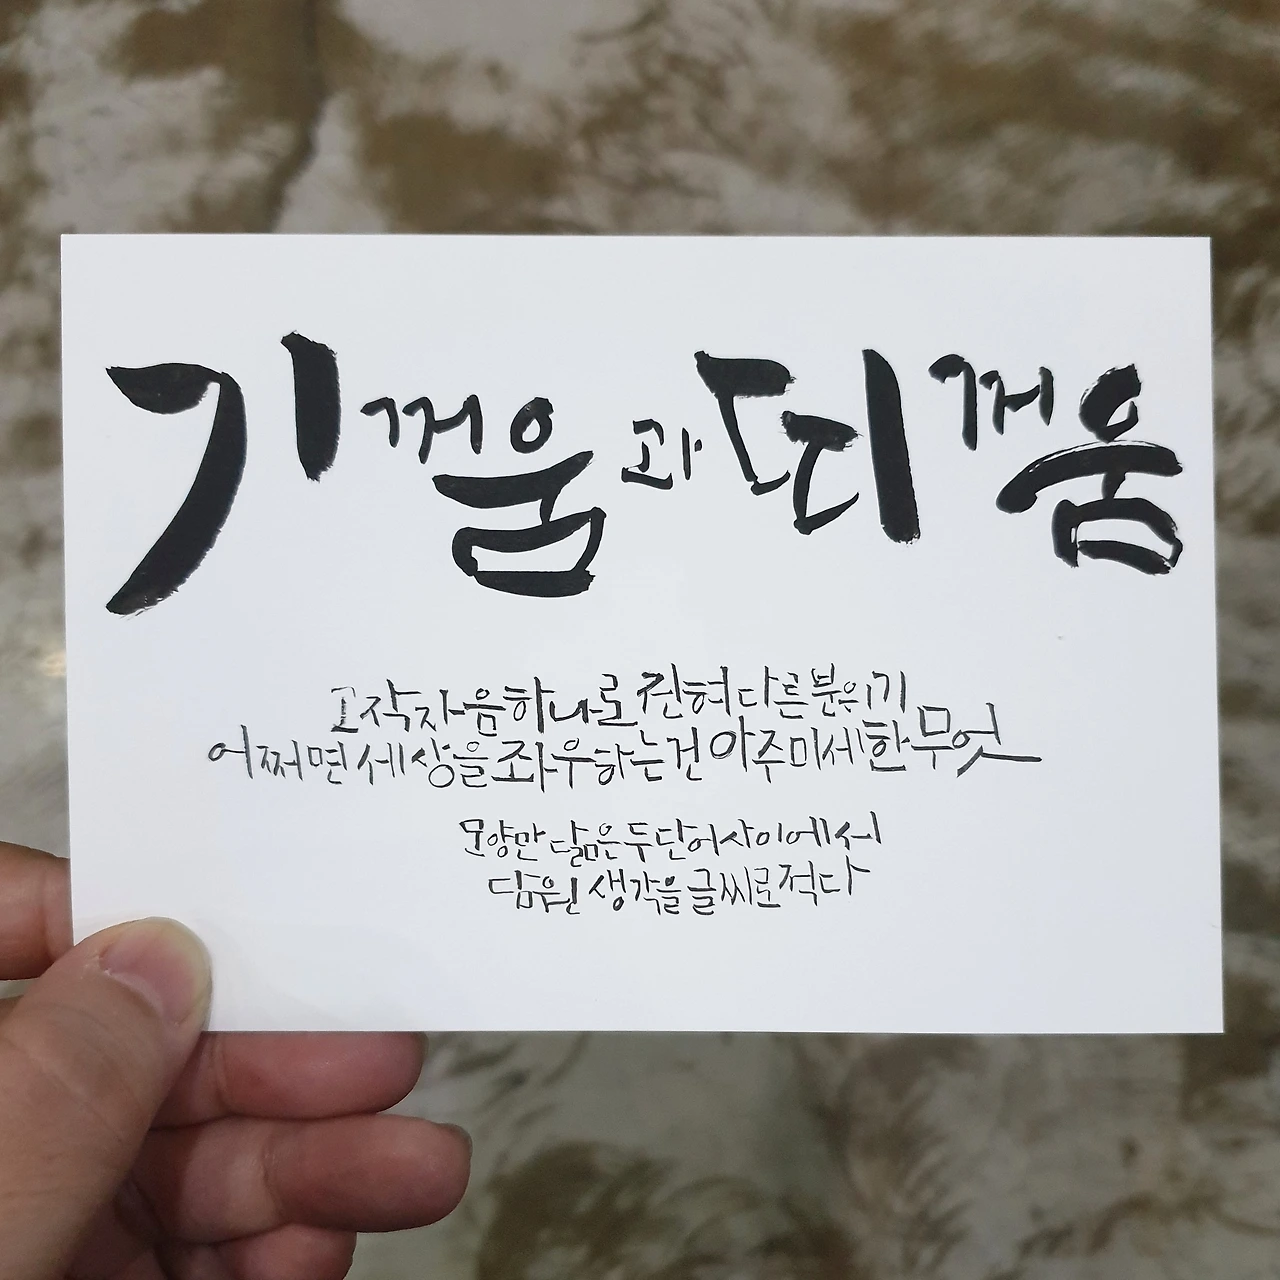 기꺼움과 띠꺼움
고작 자음 하나로 전혀 다른 분위기
어쩌면 세상을 좌우하는 건 아주 미세한 무엇
모양만 닮은 두 단어 사이에서
담원 생각을 글씨로 적다